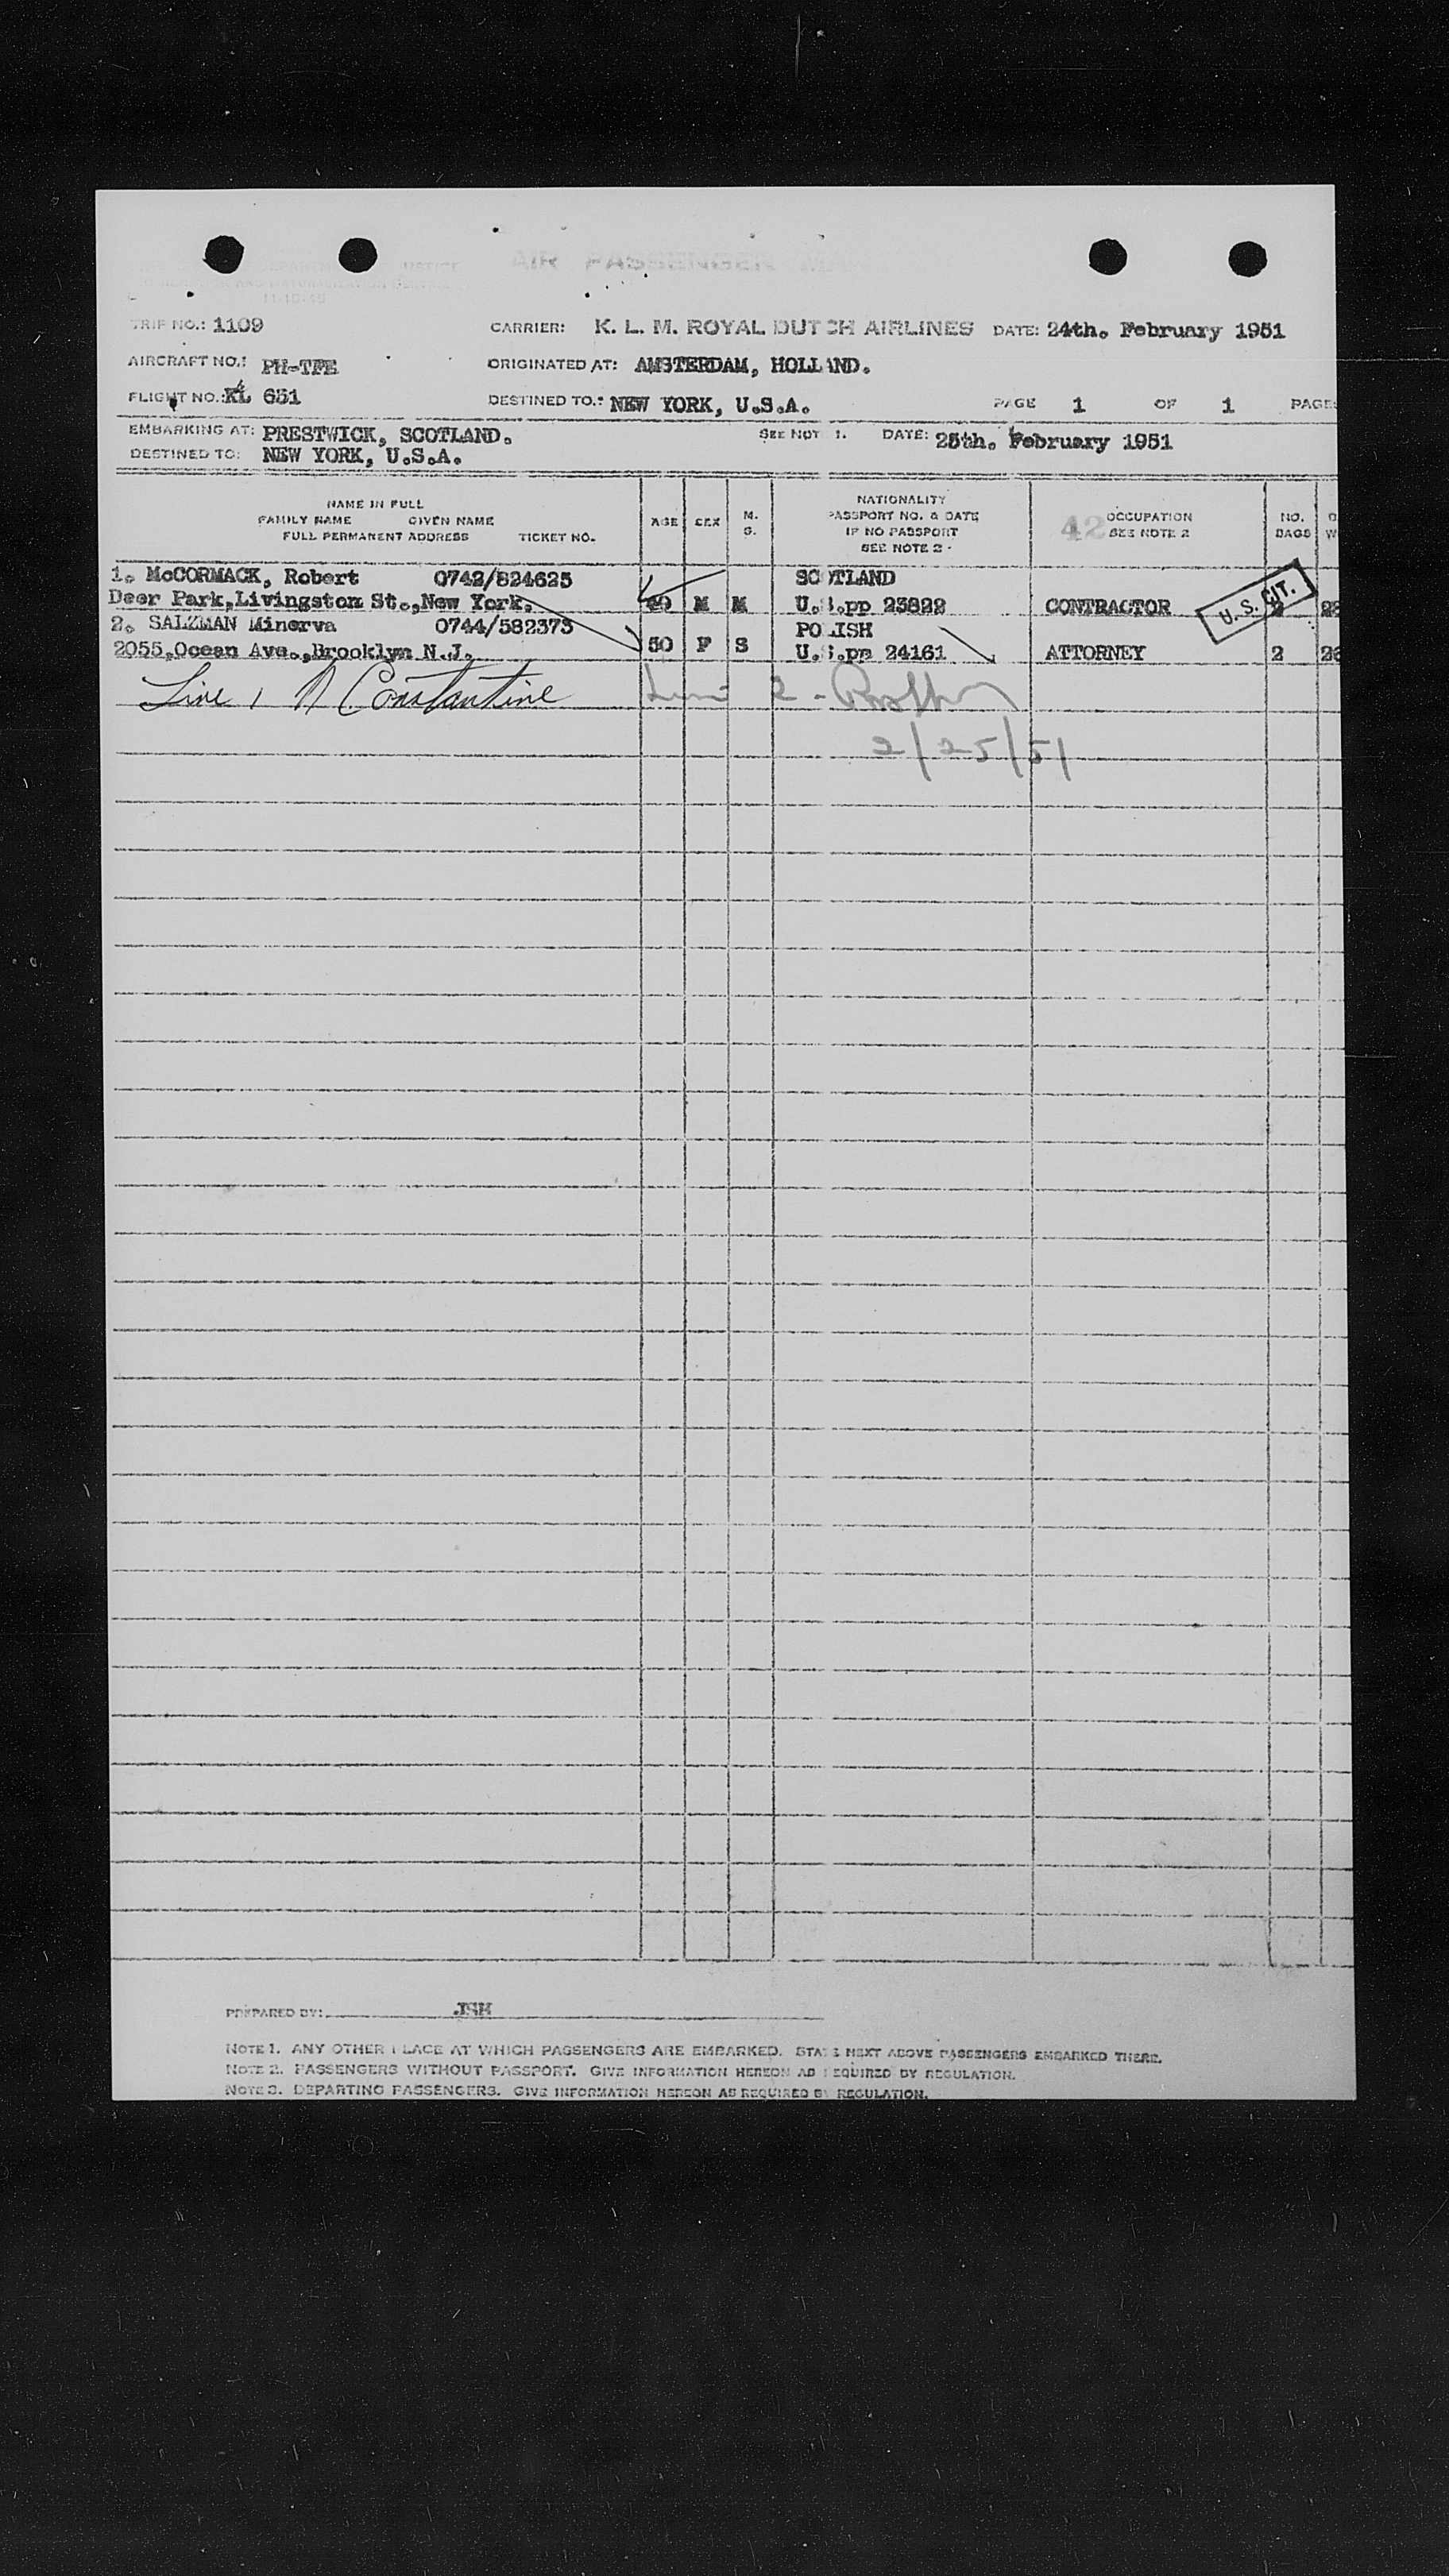 AIR PASSENGER
TRIP NO.: 1109 CARRIER: K. L. M. ROYAL DUTCH AIRLINES DATE: 24th. February 1951
AIRCRAFT NO.: PH-TFE ORIGINATED AT: AMSTERDAM, HOLLAND.
FLIGHT NO.: KL 651 DESTINED TO.: NEW YORK, U.S.A. PAGE 1 OF 1 PAGES
EMBARKING AT: PRESTWICK, SCOTLAND. SEE NOTE 1. DATE: 25th. February 1951
DESTINED TO: NEW YORK, U.S.A.
NAME IN FULL
FAMILY NAME GIVEN NAME
FULL PERMANENT ADDRESS TICKET NO.
AGE
SEX
M.
S.
NATIONALITY
PASSPORT NO. & DATE
IF NO PASSPORT
SEE NOTE 2
42 OCCUPATION
SEE NOTE 2
NO.
BAGS
1. McCORMACK, Robert 0742/824625 SCOTLAND
Deer Park,Livingston St.,New York. M M U.S.pp 23822 CONTRACTOR
U.S. CIT.
2. SALZMAN Minerva 0744/582373 POLISH
2055,Ocean Ave.,Brooklyn N.J. 50 F S U.S.pp 24161 ATTORNEY 2 26
Line 1 N Constantine Line 2 -
2/25/51
PREPARED BY: JSH
NOTE 1. ANY OTHER PLACE AT WHICH PASSENGERS ARE EMBARKED. STATE NEXT ABOVE PASSENGERS EMBARKED THERE.
NOTE 2. PASSENGERS WITHOUT PASSPORT. GIVE INFORMATION HEREON AS REQUIRED BY REGULATION.
NOTE 3. DEPARTING PASSENGERS. GIVE INFORMATION HEREON AS REQUIRED BY REGULATION.